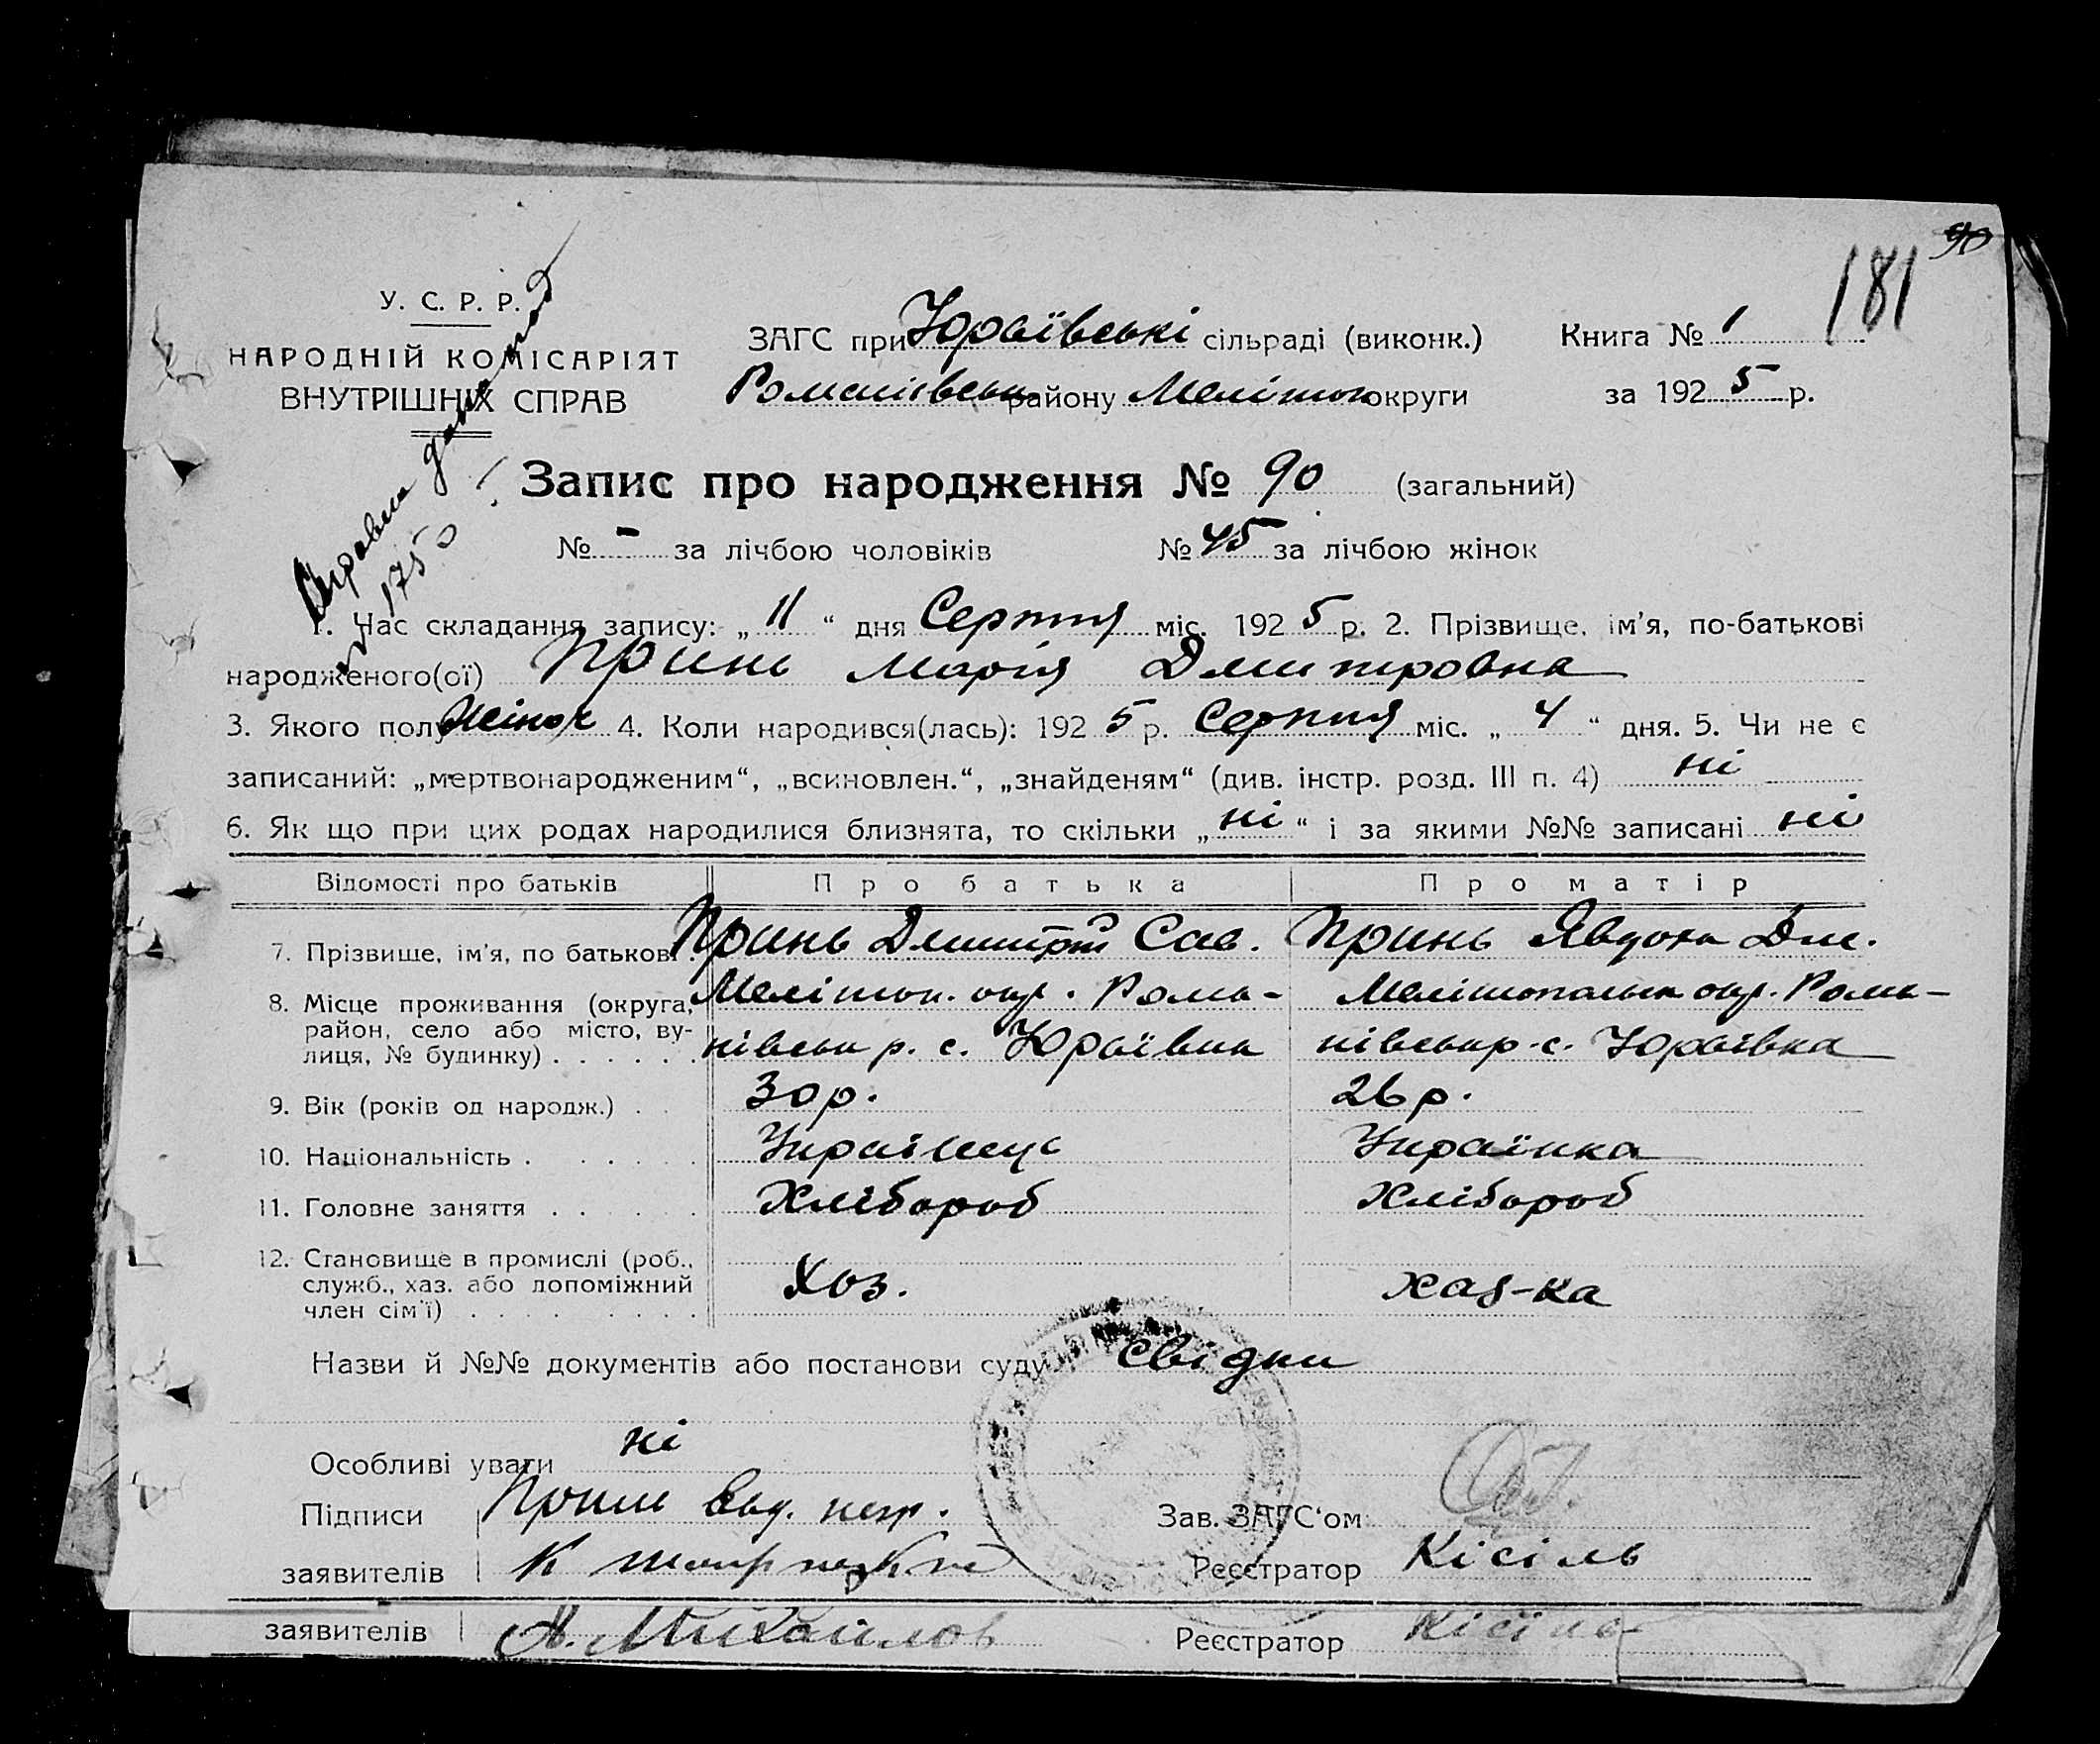 90
181
У. С. Р. Р.
НАРОДНІЙ КОМІСАРІЯТ
ВНУТРІШНІХ СПРАВ
ЗАГС при Юраївські сільраді (виконк.) Книга № 1
району Мелітоп округи за 1925 р.
Запис про народження № 90 (загальний)
№ - за лічбою чоловіків № 45 за лічбою жінок
Справка
1750
1. Час складання запису: „11“ дня Серпня міс. 1925 р. 2. Прізвище, ім'я, по-батькові
народженого(ої) Принь Марія Дмитровна
3. Якого полу Жіноч 4. Коли народився(лась): 1925 р. Серпня міс. „4“ дня. 5. Чи не є
записаний: „мертвонародженим“, „всиновлен.“, „знайденям“ (див. інстр. розд. III п. 4) ні
6. Як що при цих родах народилися близнята, то скільки „ні“ і за якими №№ записані ні
Відомості про батьків Про батька Про матір
7. Прізвище, ім'я, по батькові. Принь Дмитрій Сав. Принь Явдоха Дм.
8. Місце проживання (округа, Мелітоп. окр. Рома- Меліпопальск окр. Рома-
район, село або місто, ву-
лиця, № будинку) . . . . . . нівськ р. с. Юраївка нівськ р. с. Юраївка
9. Вік (років од народж.) . . 30 р. 26 р.
10. Національність . . . . . . Українець Українка
11. Головне заняття . . . . . Хлібороб Хлібороб
12. Становище в промислі (роб.,
служб., хаз. або допоміжний Хоз. хаз-ка
член сім'ї) . . . . . . . .
Назви й №№ документів або постанови суду Свідки
Особливі уваги ні
Підписи Принь Зав. ЗАГС'ом
заявителів Реєстратор Кісіль
заявителів А. Михайлов Реєстратор Кісіль